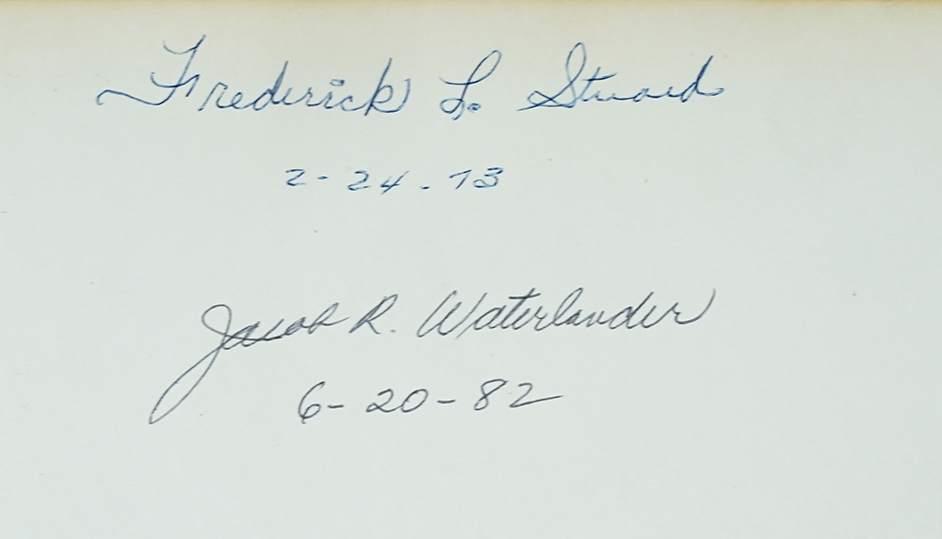 Frederick L. Stuard
2-24-73
Jacob R. Waterlander
6-20-82